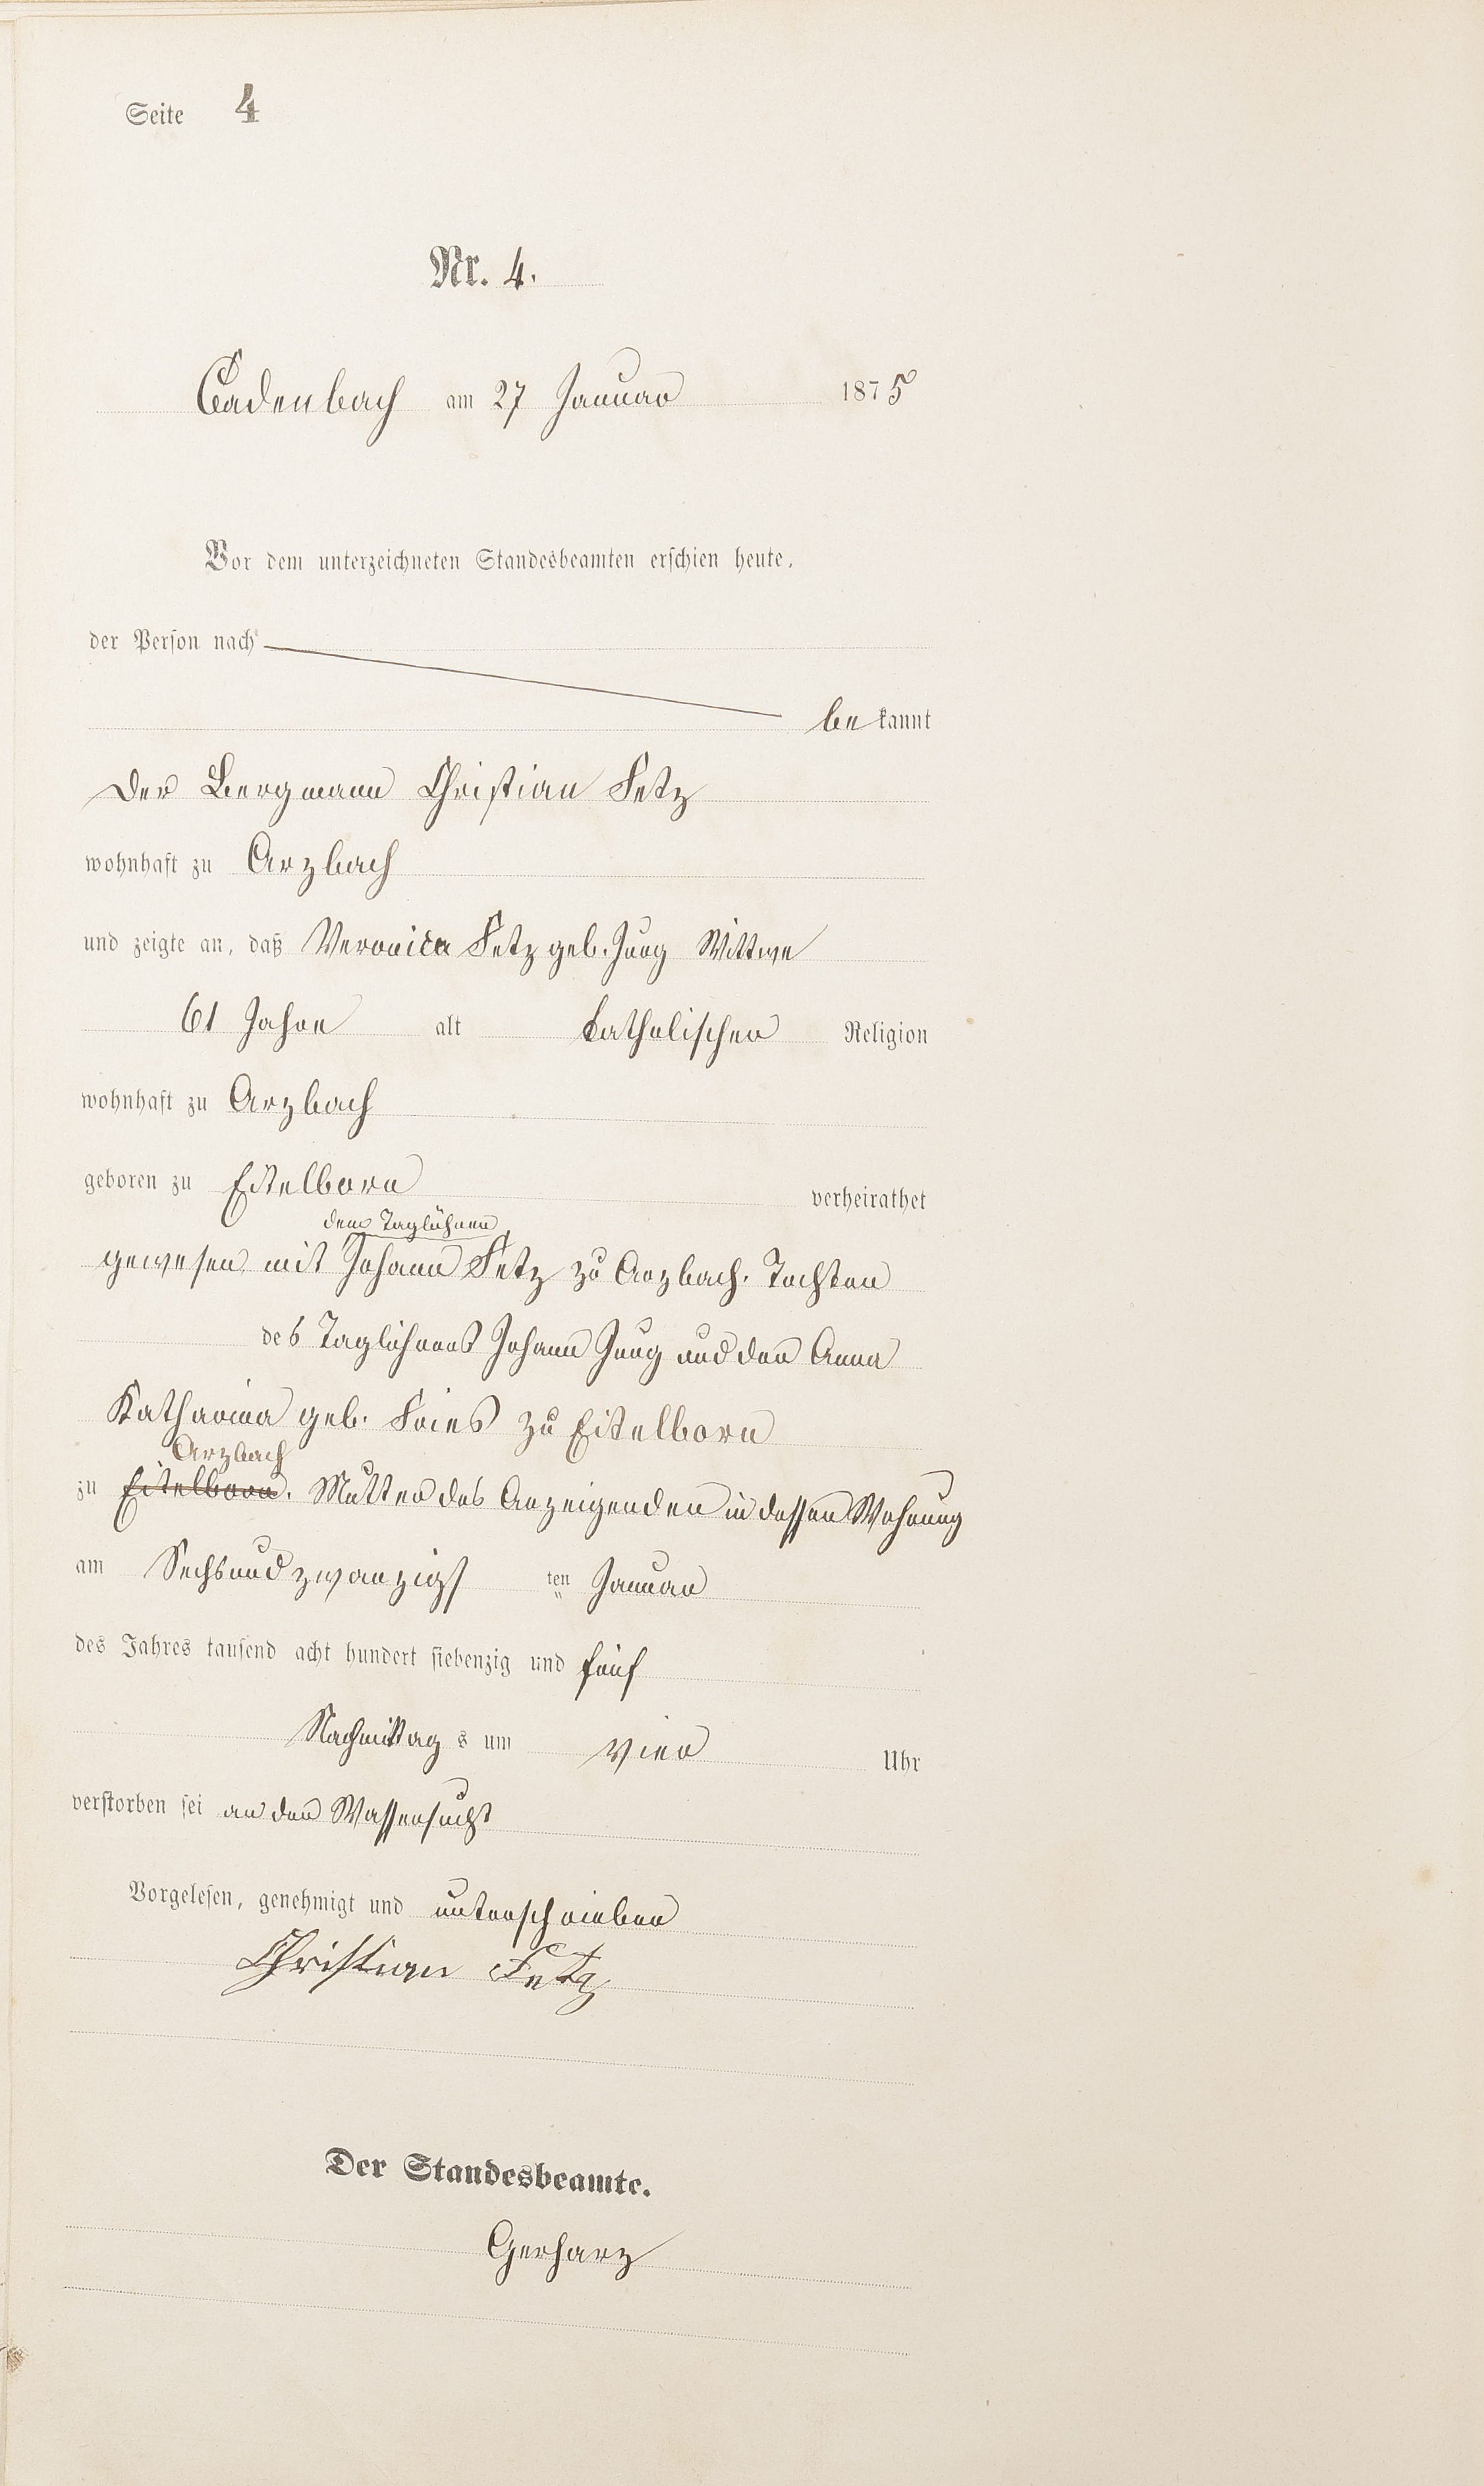 Seite 4
Nr. 4.
Cadenbach am 27 Januar 1875
Vor dem unterzeichneten Standesbeamten erschien heute,
der Person nach
be kannt
der Bergmann Christian Fetz
wohnhaft zu Arzbach
und zeigte an, daß Veronica Fetz geb. Jung Wittwe
61 Jahre alt katholischer Religion
wohnhaft zu Arzbach
geboren zu Eitelborn verheirathet
dem Taglöhner
gewesen mit Johann Fetz zu Arzbach. Tochter
des Taglöhners Johann Jung und der Anna
Katharina geb. Fries zu Eitelborn
Arzbach
zu Eitelborn. Mutter des Anzeigenden in dessen Wohnung
am Sechsundzwanzigs ten Januar
des Jahres tausend acht hundert siebenzig und fünf
Nachmittag s um vier Uhr
verstorben sei an der Wassersucht
Vorgelesen, genehmigt und unterschrieben
Christian Fetz
Der Standesbeamte.
Gerharz